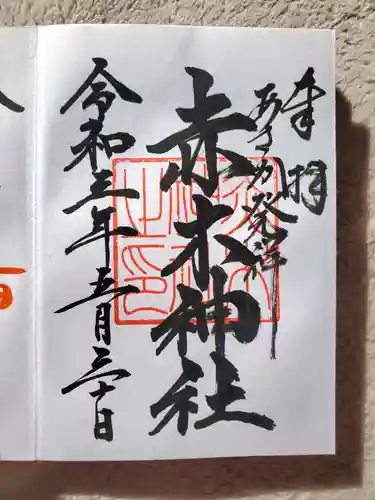 奉拝
あさか発祥
赤木神社
令和三年五月三十日